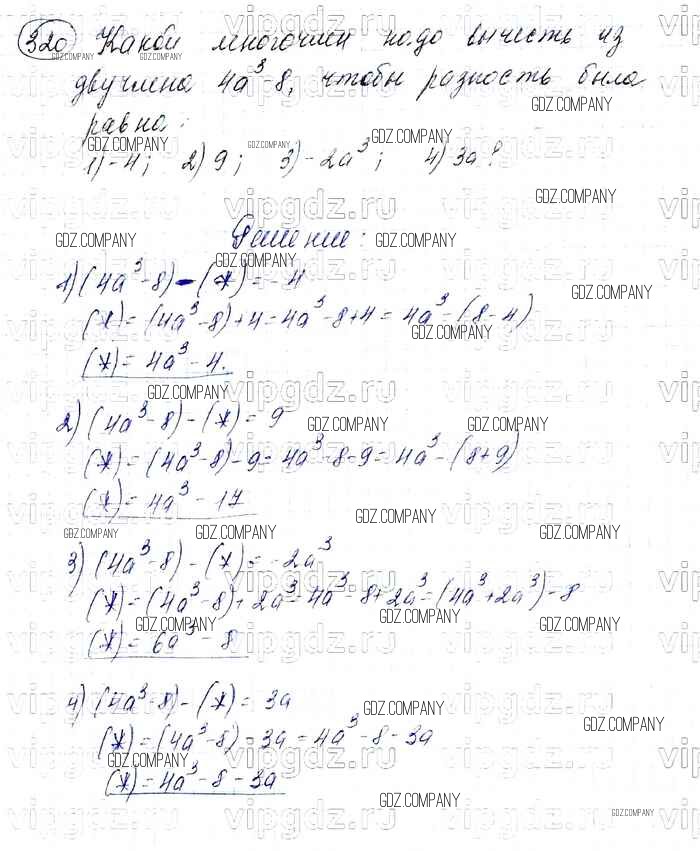 320 Какой многочлен надо вычесть из
двучлена 4a³-8, чтобы разность была
равна:
1) -4; 2) 9; 3) -2a³; 4) 3a?
Решение:
1) (4a³-8) - (*) = -4
(*) = (4a³-8)+4 = 4a³-8+4 = 4a³-(8-4)
(*) = 4a³-4.
2) (4a³-8) - (*) = 9
(*) = (4a³-8)-9 = 4a³-8-9 = 4a³-(8+9)
(*) = 4a³-17
3) (4a³-8) - (*) = -2a³
(*) = (4a³-8)+2a³ = 4a³-8+2a³ = (4a³+2a³)-8
(*) = 6a³-8
4) (4a³-8) - (*) = 3a
(*) = (4a³-8) = 3a = 4a³-8-3a
(*) = 4a³-8-3a
vipgdz.ru
GDZ.COMPANY